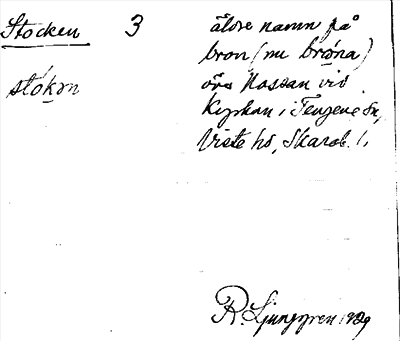 Stocken 3 äldre namn på
bron (nu bróna)
stókən över Nossan vid
Kyrkan i Tengene sn,
Viste hd, Skarab. l.
R. Ljunggren 1929